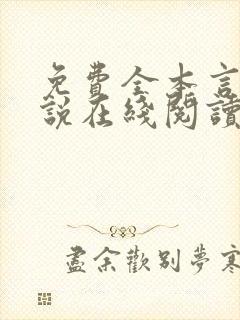 免费全本言
说在綫閱讀
盡余歡别夢寒